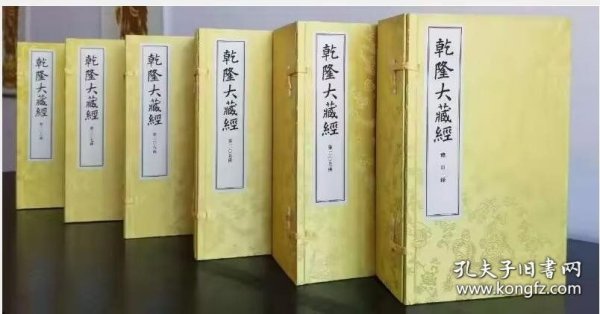 乾隆大藏經
乾隆大藏經
乾隆大藏經
乾隆大藏經
乾隆大藏經
乾隆大藏經
總目錄
孔夫子旧书网
www.kongfz.com